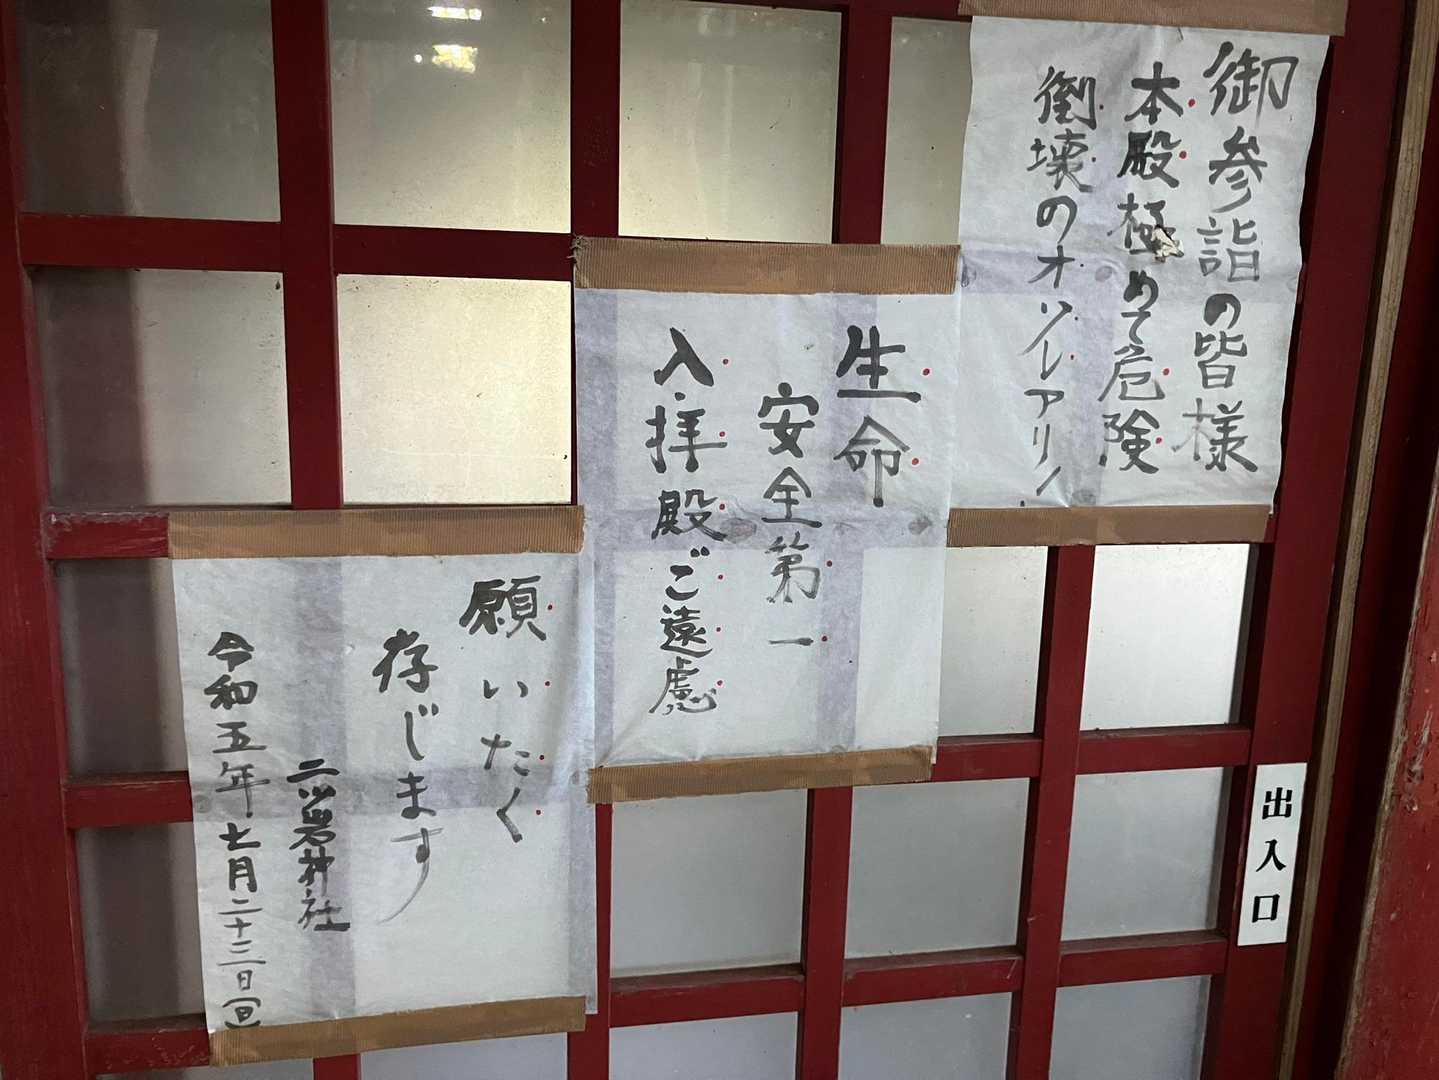 御参詣の皆様
本殿極めて危険
倒壊のオソレアリ！
生命
安全第一
入拝殿ご遠慮
願いたく
存じます
二ツ岩神社
令和五年七月二十三日(日)
出入口